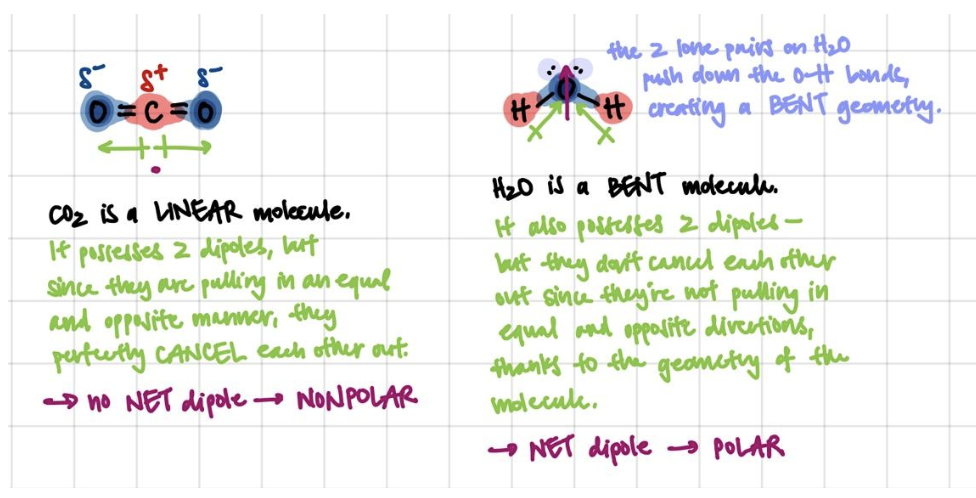 δ- δ+ δ-
O = C = O
CO2 is a LINEAR molecule.
It possesses 2 dipoles, but
since they are pulling in an equal
and opposite manner, they
perfectly CANCEL each other out.
→ no NET dipole → NONPOLAR
the 2 lone pairs on H2O
push down the O-H bonds,
creating a BENT geometry.
H O H
H2O is a BENT molecule.
It also possesses 2 dipoles —
but they don't cancel each other
out since they're not pulling in
equal and opposite directions,
thanks to the geometry of the
molecule.
→ NET dipole → POLAR